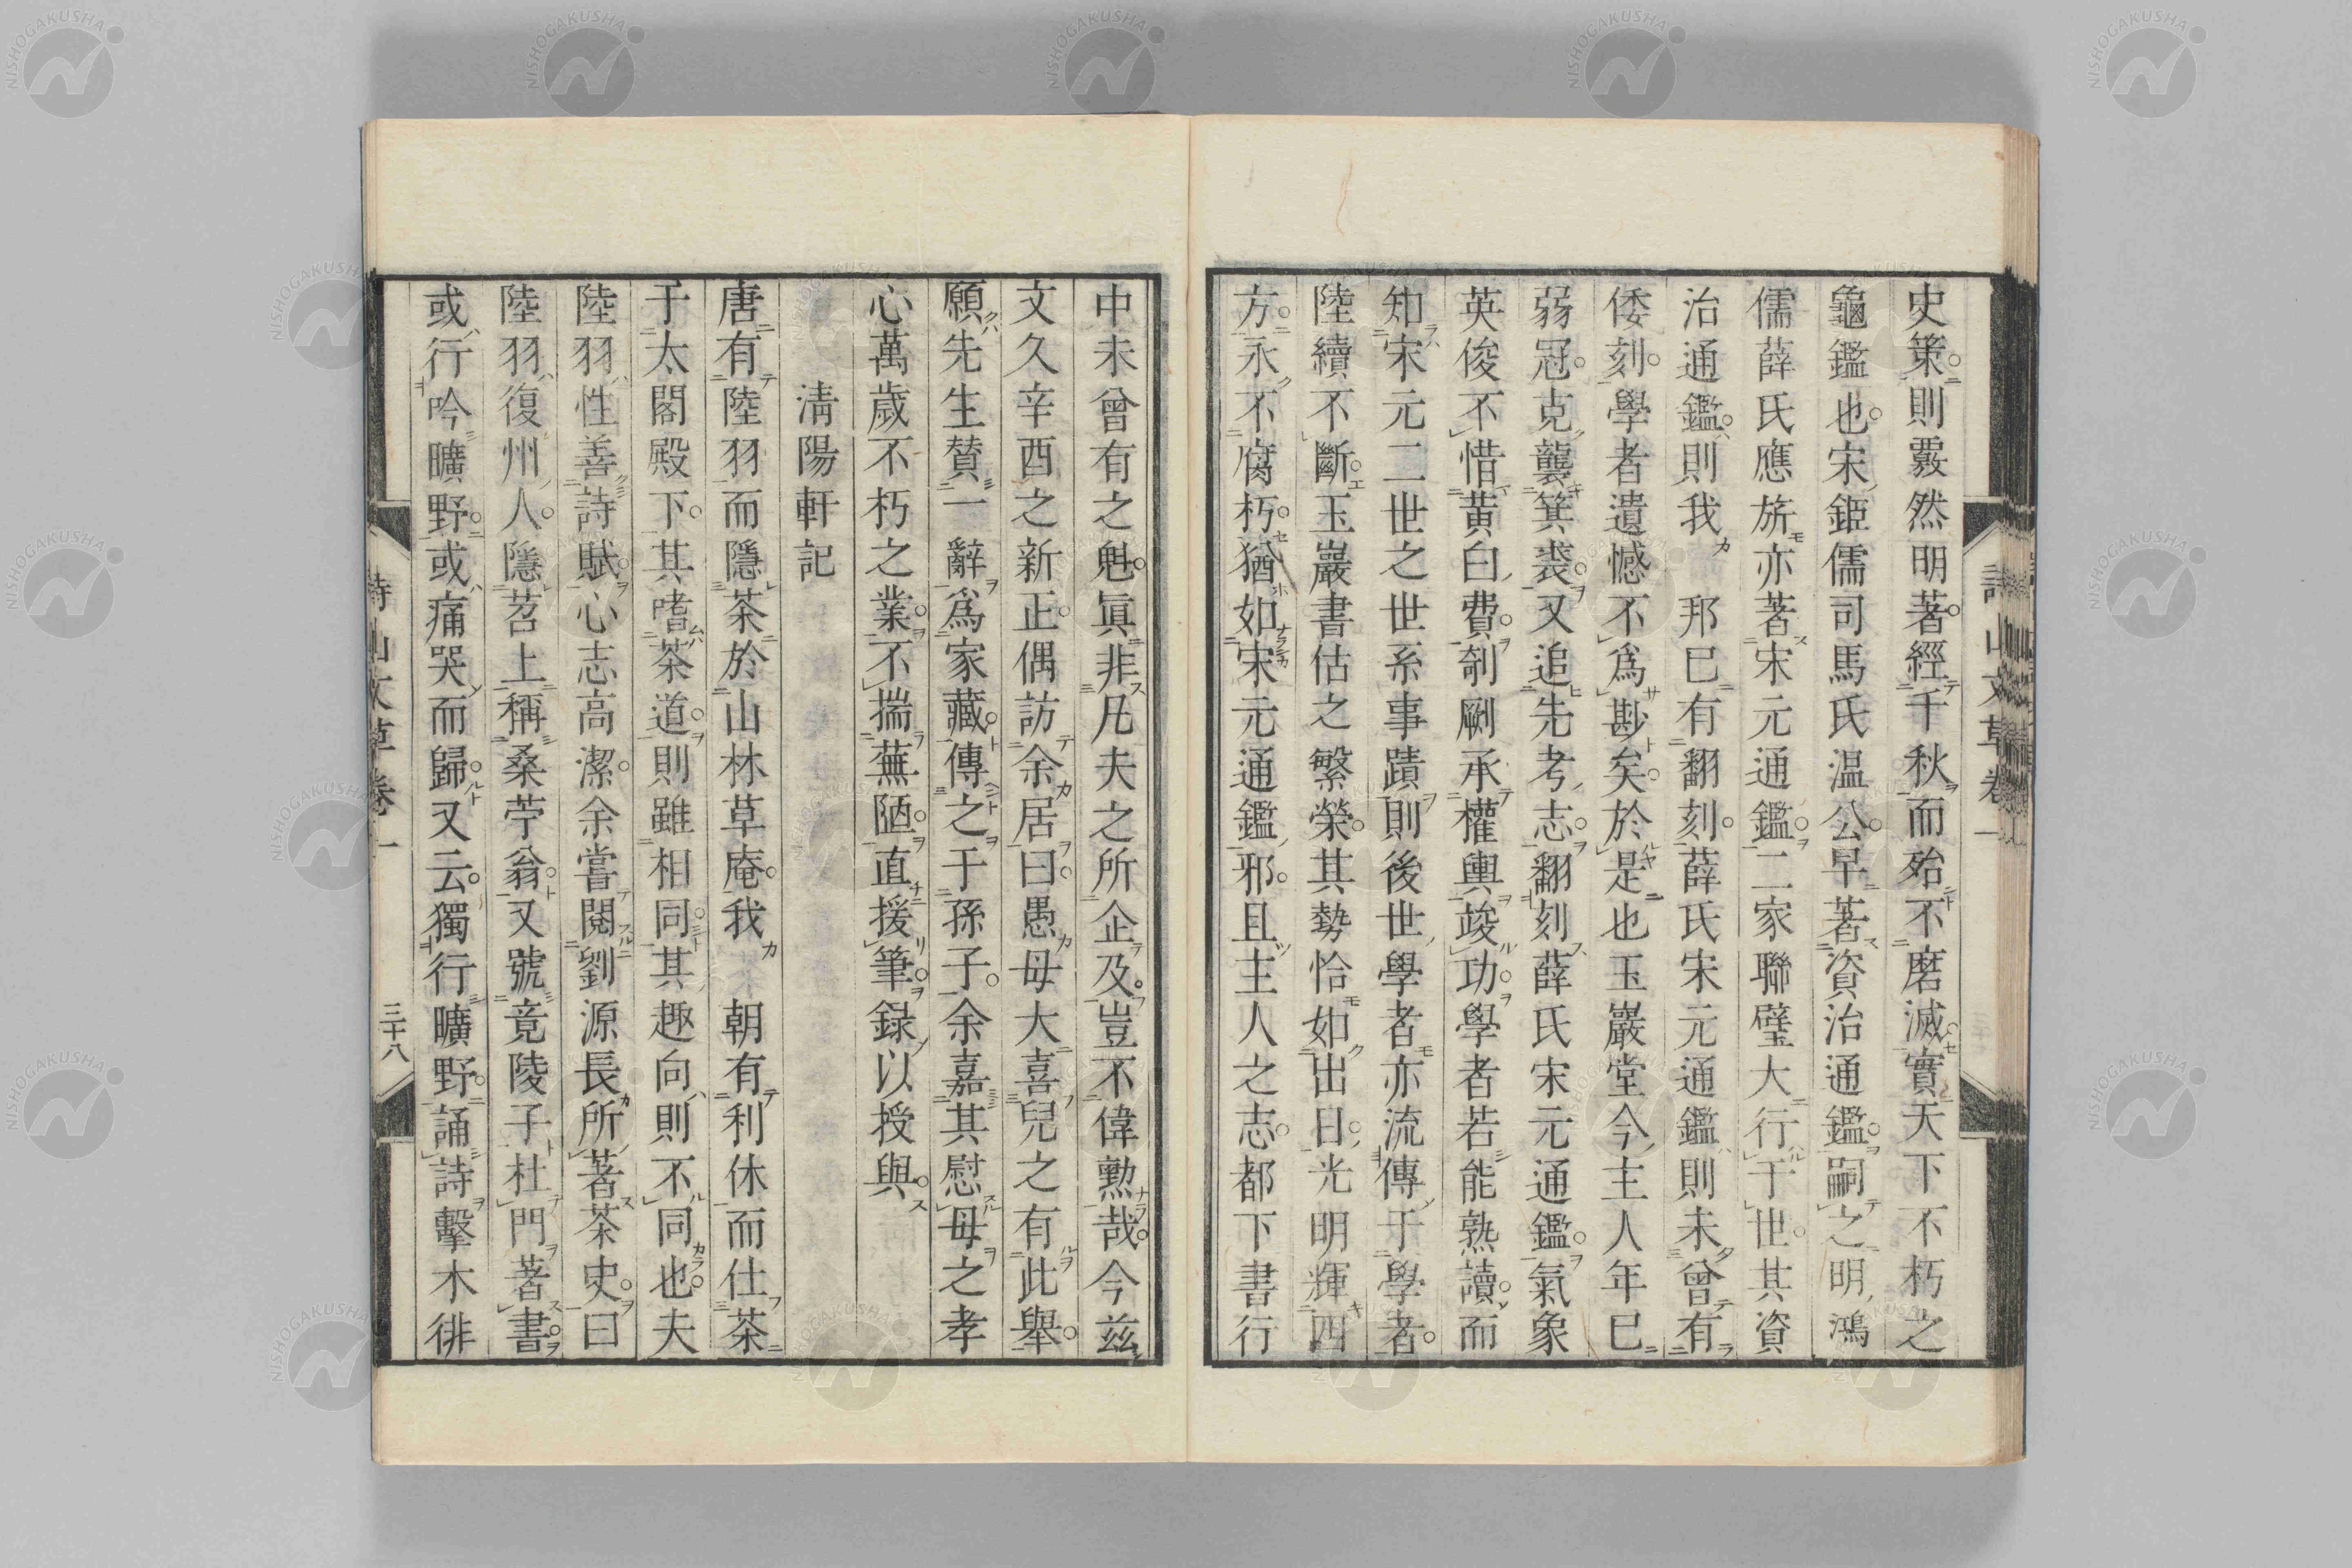 史策則覈然明著經千秋而殆不磨滅實天下不朽之
龜鑑也宋鉅儒司馬氏温公早著資治通鑑嗣之明鴻
儒薛氏應旂亦著宋元通鑑二家聯璧大行于世其資
治通鑑則我 邦已有翻刻薛氏宋元通鑑則未曾有
倭刻學者遺憾不爲尠矣於是也玉巖堂今主人年已
弱冠克襲箕裘又追先考志翻刻薛氏宋元通鑑氣象
英俊不惜黃白費剞劂承權輿竣功學者若能熟讀而
知宋元二世之世系事蹟則後世學者亦流傳于學者
陸續不斷玉巖書估之繁榮其勢恰如出日光明輝四
方永不腐朽猶如宋元通鑑邪且主人之志都下書行
中未曾有之魁眞非凡夫之所企及豈不偉勲哉今茲
文久辛酉之新正偶訪余居曰愚母大喜兒之有此舉
願先生賛一辭爲家藏傳之于孫子余嘉其慰母之孝
心萬歲不朽之業不揣蕪陋直援筆録以授與
淸陽軒記
唐有陸羽而隱茶於山林草庵我 朝有利休而仕茶
于太閤殿下其嗜茶道則雖相同其趣向則不同也夫
陸羽性善詩賦心志高潔余嘗閱劉源長所著茶史曰
陸羽復州人隱苕上稱桑苧翁又號竟陵子杜門著書
或行吟曠野或痛哭而歸又云獨行曠野誦詩擊木徘
詩山文草卷一
三十八
詩山文草卷一
NISHOGAKUSHA